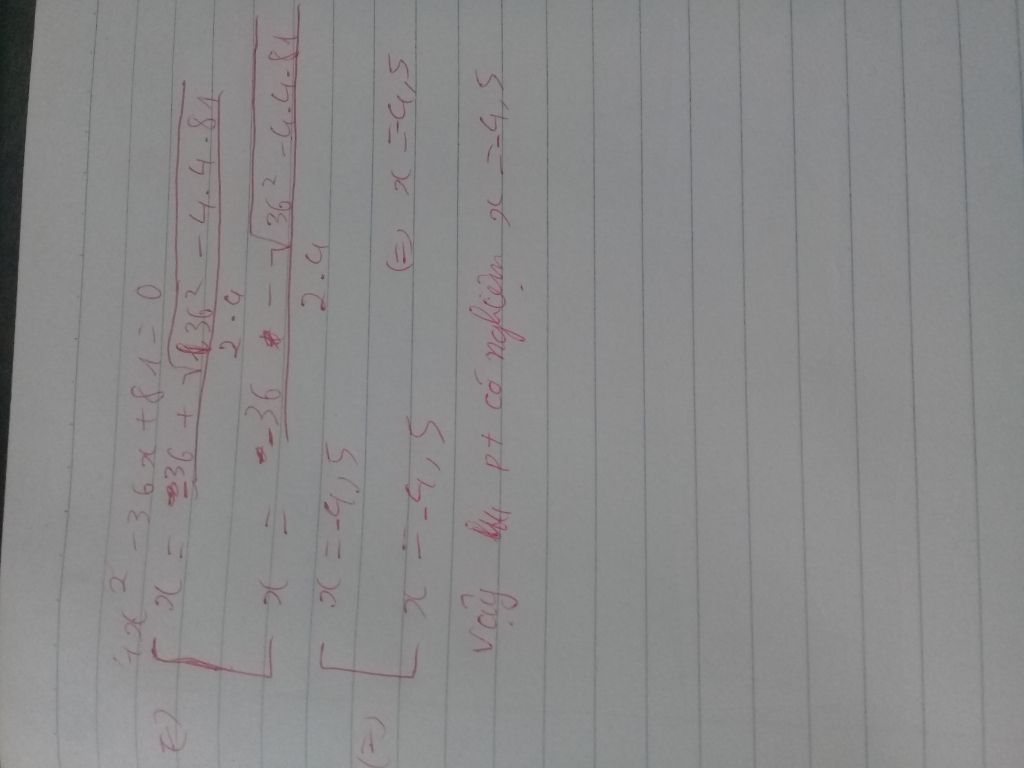 4x² - 36x + 81 = 0
(=) [ x = -36 + √(36² - 4.4.81) / 2.4
x = -36 - √(36² - 4.4.81) / 2.4
(=) [ x = -4,5
x = -4,5 (=) x = -4,5
Vậy pt có nghiệm x = -4,5